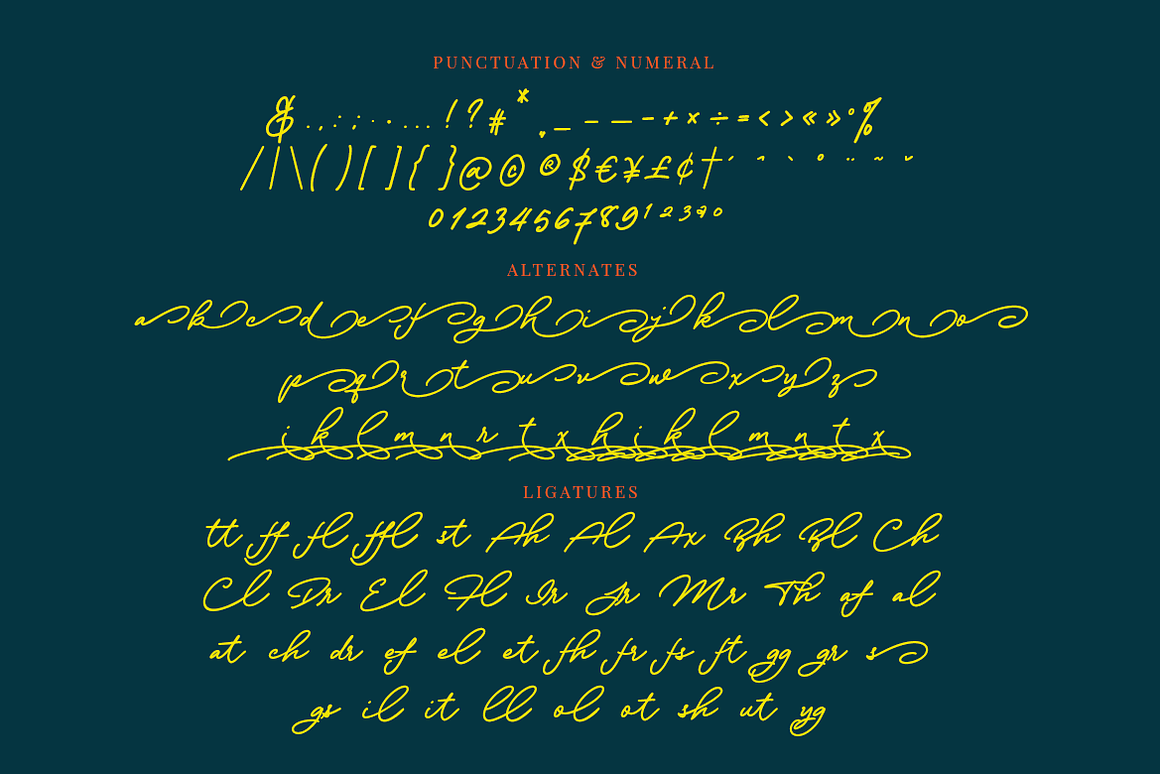 PUNCTUATION & NUMERAL
& . , : ; · • ... ! ? # * ‚ _ - — - + × ÷ = < > « » ° %
/ | \ ( ) [ ] { } @ © ® $ € ¥ £ ¢ † ´ ˆ ` ° ¨ ~ ˇ
0 1 2 3 4 5 6 7 8 9 1 2 3 a o
ALTERNATES
a b c d e f g h i j k l m n o
p q r t u v w x y z
i k l m n r t x h i k l m n t x
LIGATURES
tt ff fl ffl st Ah Al Ax Bh Bl Ch
Cl Dr El Fl Ir Jr Mr Th af al
at ch dr ef el et fh fr fs ft gg gr s
gs il it ll ol ot sh ut yg